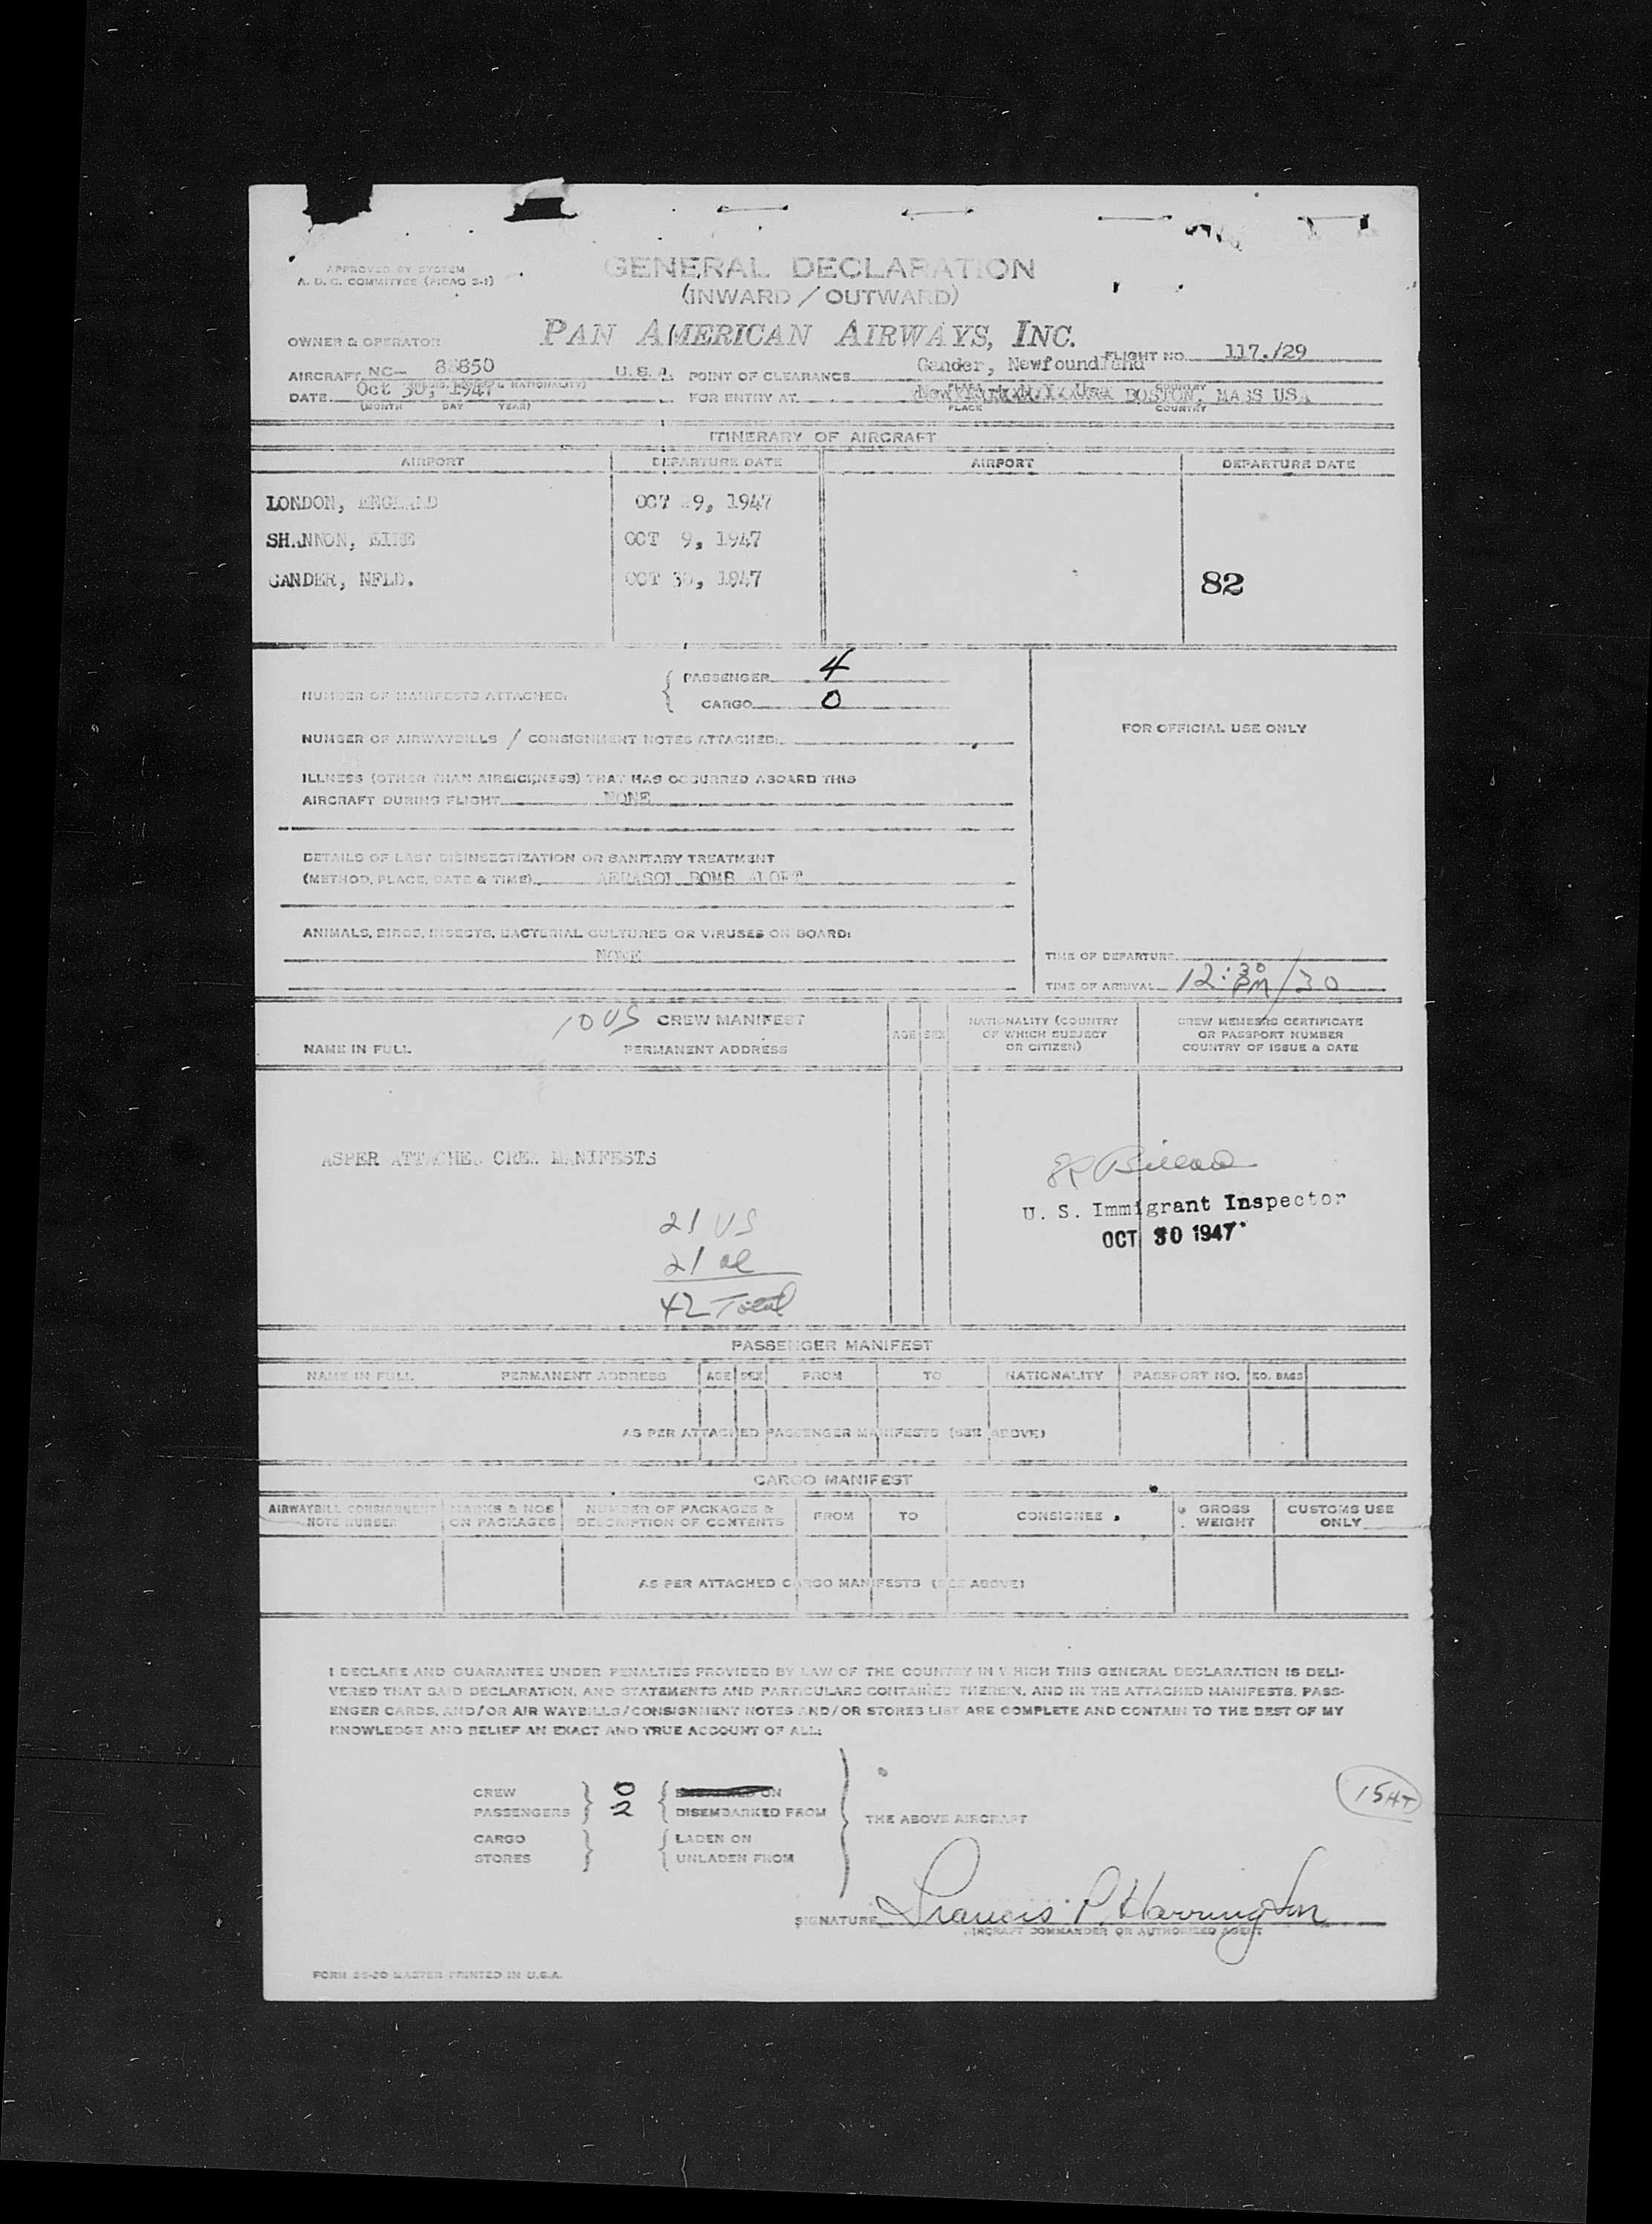 APPROVED BY SYSTEM
A. D. C. COMMITTEE (PICAO S-1)
GENERAL DECLARATION
(INWARD / OUTWARD)
PAN AMERICAN AIRWAYS, INC.
OWNER & OPERATOR
FLIGHT NO. 117./29
AIRCRAFT NC- 88850 U.S.A. POINT OF CLEARANCE Gander, Newfoundland
DATE Oct 30, 1947 FOR ENTRY AT BOSTON, MASS USA
(MONTH DAY YEAR) PLACE COUNTRY
ITINERARY OF AIRCRAFT
AIRPORT DEPARTURE DATE AIRPORT DEPARTURE DATE
LONDON, ENGLAND OCT 9, 1947
SHANNON, EIRE OCT 9, 1947
GANDER, NFLD. OCT 30, 1947 82
NUMBER OF MANIFESTS ATTACHED: PASSENGER 4
CARGO 0
FOR OFFICIAL USE ONLY
NUMBER OF AIRWAYBILLS / CONSIGNMENT NOTES ATTACHED:
ILLNESS (OTHER THAN AIRSICKNESS) THAT HAS OCCURRED ABOARD THIS
AIRCRAFT DURING FLIGHT NONE
DETAILS OF LAST DISINSECTIZATION OR SANITARY TREATMENT
(METHOD, PLACE, DATE & TIME) AERASOL BOMB ALOFT
ANIMALS, BIRDS, INSECTS, BACTERIAL CULTURES OR VIRUSES ON BOARD:
NONE
TIME OF DEPARTURE
TIME OF ARRIVAL 12:30 PM/30
10 US CREW MANIFEST
NAME IN FULL PERMANENT ADDRESS AGE SEX NATIONALITY (COUNTRY OF WHICH SUBJECT OR CITIZEN) CREW MEMBERS CERTIFICATE OR PASSPORT NUMBER COUNTRY OF ISSUE & DATE
ASPER ATTACHED CREW MANIFESTS
U. S. Immigrant Inspector
OCT 30 1947
21 US
21 al
42 Total
PASSENGER MANIFEST
NAME IN FULL PERMANENT ADDRESS AGE SEX FROM TO NATIONALITY PASSPORT NO. NO. BAGS
AS PER ATTACHED PASSENGER MANIFESTS (SEE ABOVE)
CARGO MANIFEST
AIRWAYBILL CONSIGNMENT NOTE NUMBER MARKS & NOS ON PACKAGES NUMBER OF PACKAGES & DESCRIPTION OF CONTENTS FROM TO CONSIGNEE GROSS WEIGHT CUSTOMS USE ONLY
AS PER ATTACHED CARGO MANIFESTS (SEE ABOVE)
I DECLARE AND GUARANTEE UNDER PENALTIES PROVIDED BY LAW OF THE COUNTRY IN WHICH THIS GENERAL DECLARATION IS DELI-
VERED THAT SAID DECLARATION, AND STATEMENTS AND PARTICULARS CONTAINED THEREIN, AND IN THE ATTACHED MANIFESTS, PASS-
ENGER CARDS, AND/OR AIR WAYBILLS/CONSIGNMENT NOTES AND/OR STORES LIST ARE COMPLETE AND CONTAIN TO THE BEST OF MY
KNOWLEDGE AND BELIEF AN EXACT AND TRUE ACCOUNT OF ALL:
CREW 0 ON
PASSENGERS 2 DISEMBARKED FROM THE ABOVE AIRCRAFT
CARGO LADEN ON
STORES UNLADEN FROM
15 HT
SIGNATURE Francis P. Harrington
AIRCRAFT COMMANDER OR AUTHORIZED AGENT
MASTER PRINTED IN U.S.A.